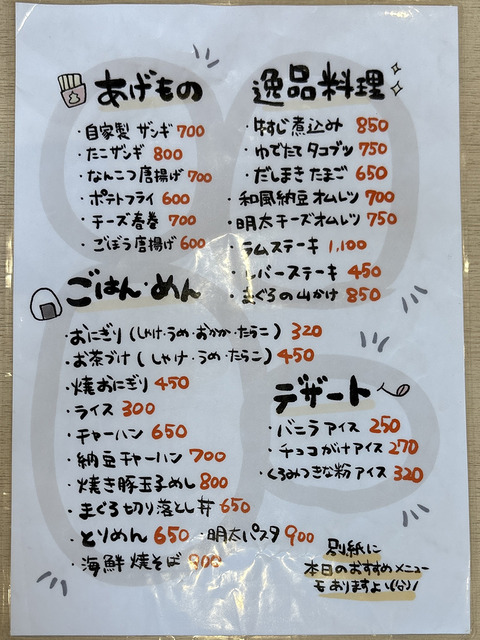 あげもの
・自家製 ザンギ 700
・たこザンギ 800
・なんこつ唐揚げ 700
・ポテトフライ 600
・チーズ春巻 700
・ごぼう唐揚げ 600
逸品料理
・牛すじ煮込み 850
・ゆでたてタコブツ 750
・だしまきたまご 650
・和風納豆オムレツ 700
・明太チーズオムレツ 750
・ラムステーキ 1,100
・レバーステーキ 450
・まぐろの山かけ 850
ごはん・めん
・おにぎり(しゃけ・うめ・おかか・たらこ) 320
・お茶づけ(しゃけ・うめ・たらこ) 450
・焼おにぎり 450
・ライス 300
・チャーハン 650
・納豆チャーハン 700
・焼き豚玉子めし 800
・まぐろ切り落とし丼 650
・とりめん 650 ・明太パスタ 900
・海鮮焼そば 900
デザート
・バニラアイス 250
・チョコがけアイス 270
・くるみつきな粉アイス 320
別紙に
本日のおすすめメニュー
もありますよ!